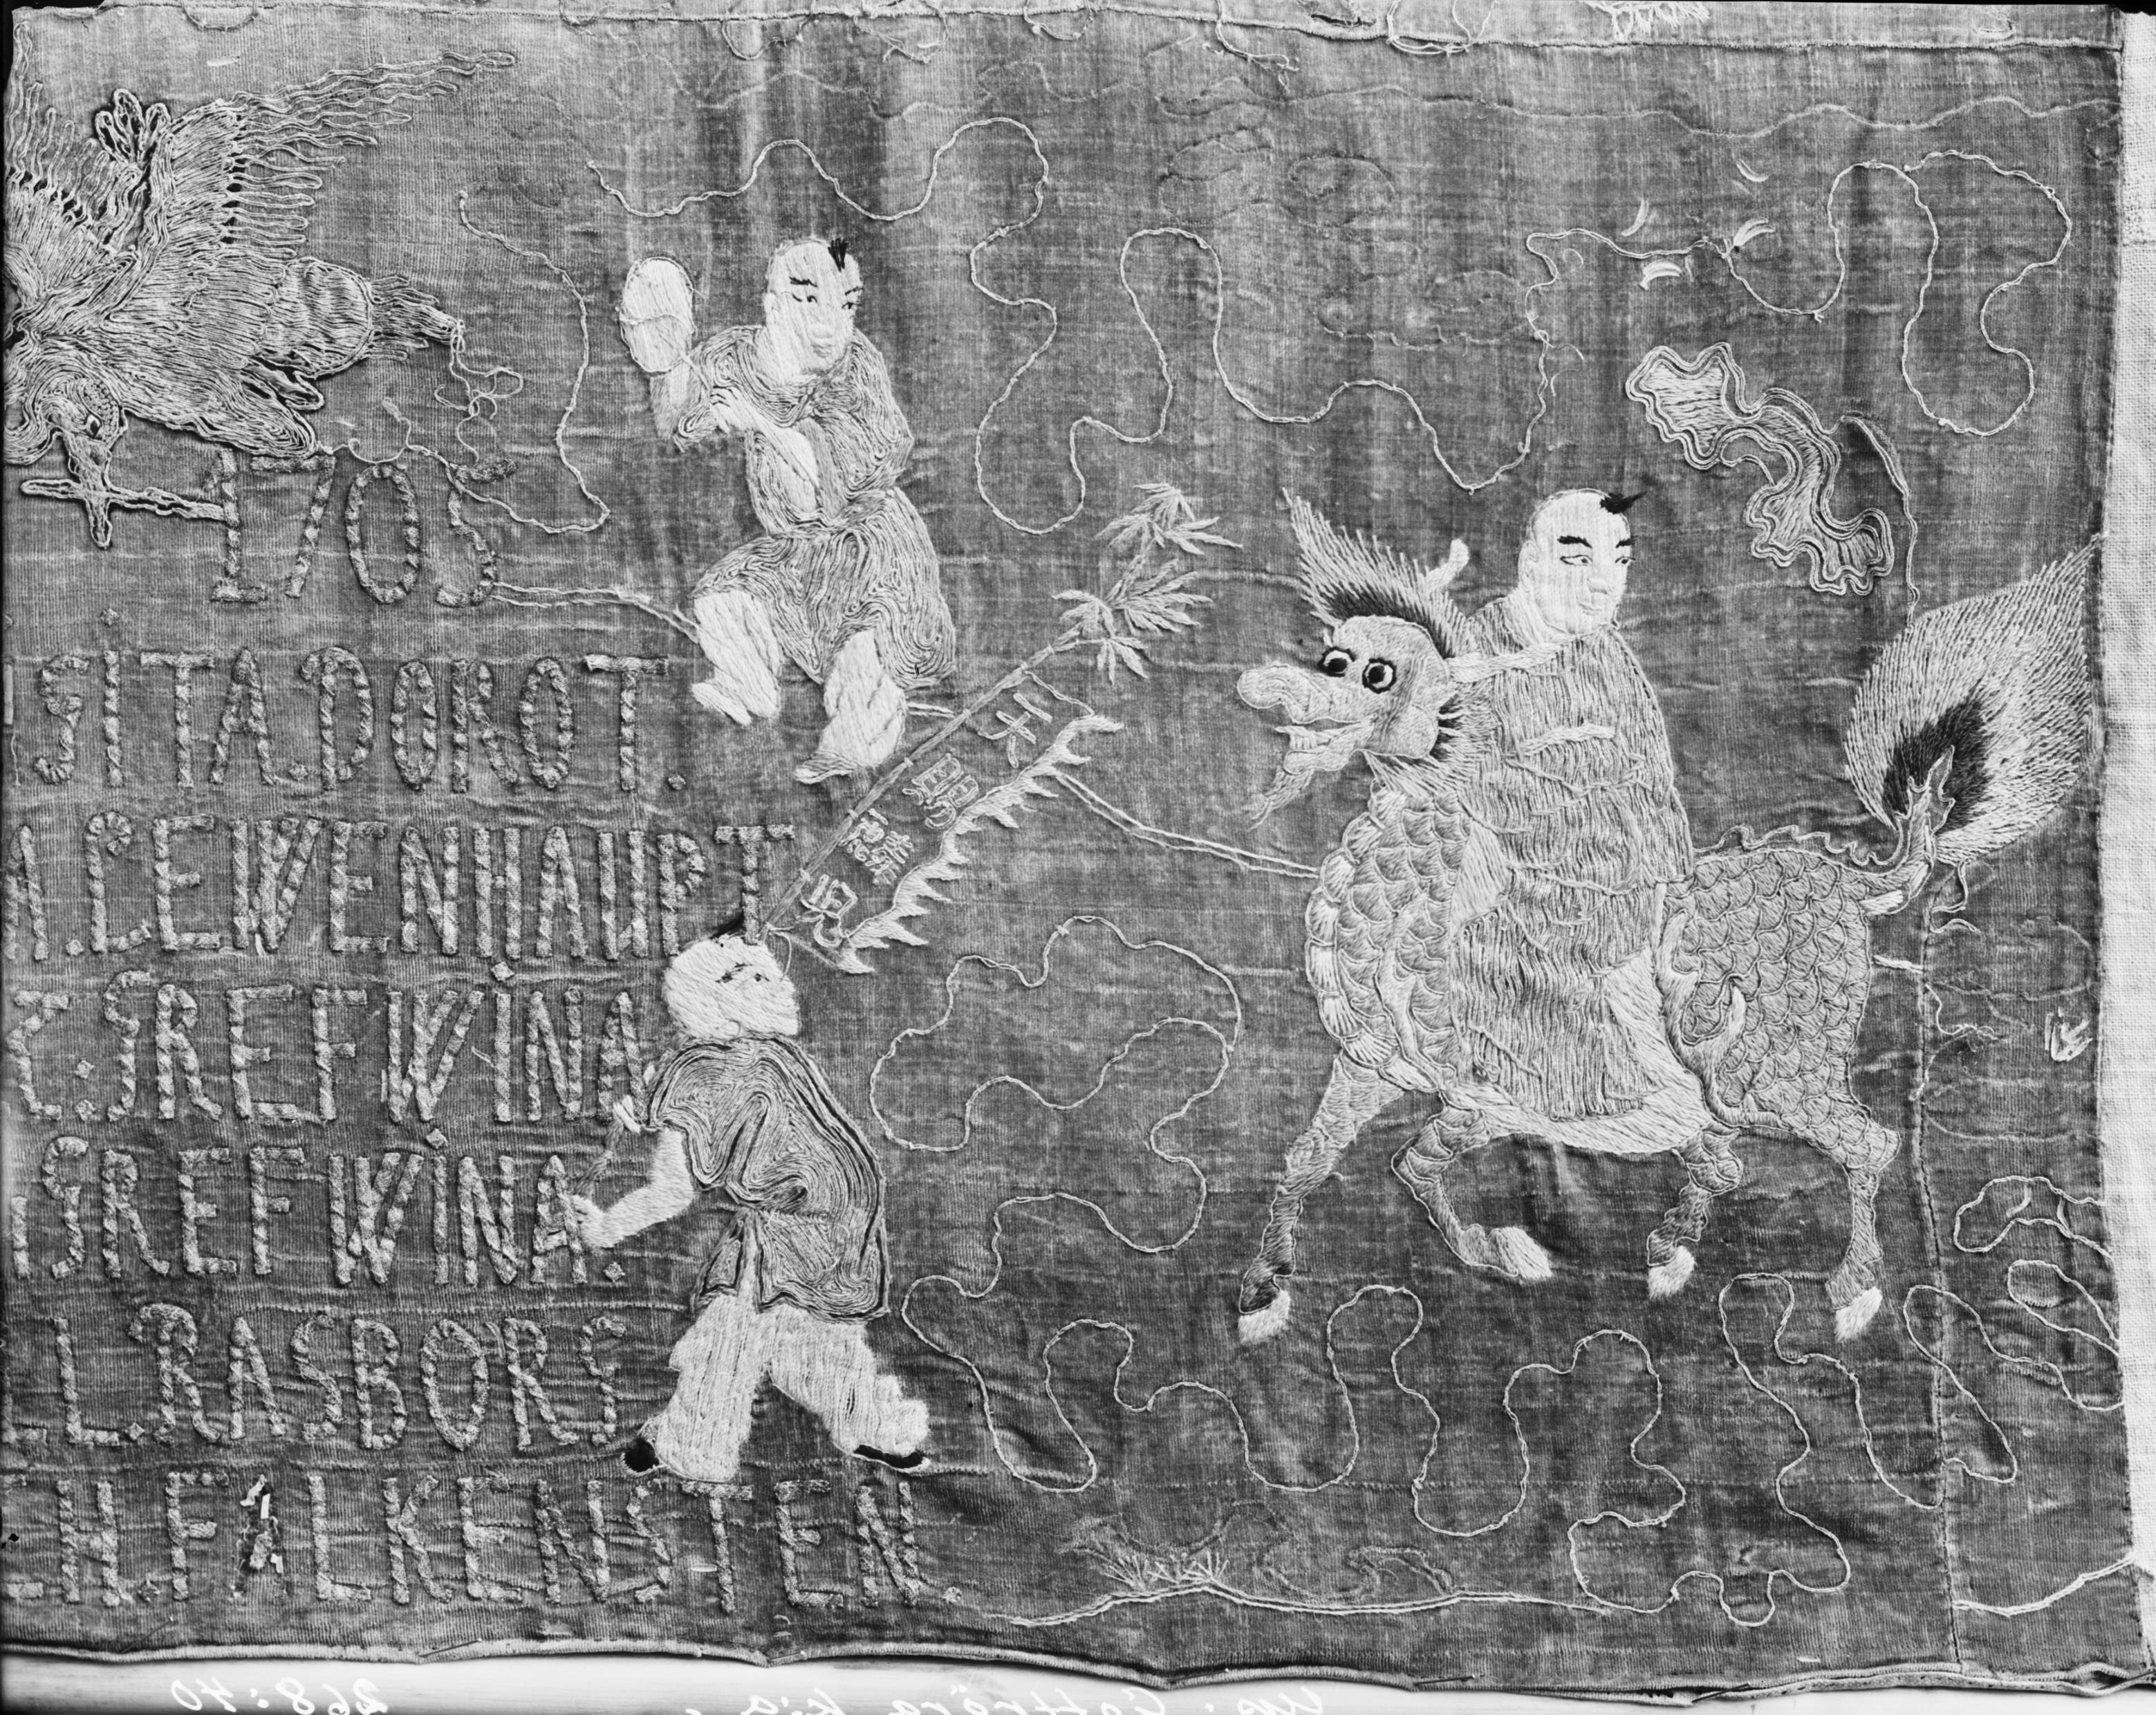 1705
SITA.DOROT.
A.LEWENHAUPT
GREFWINA
GREFWINA.
L.RASBORG
H.FALKENSTEN.
天賜麟兒
Up: Gottröra k:a. 268:40